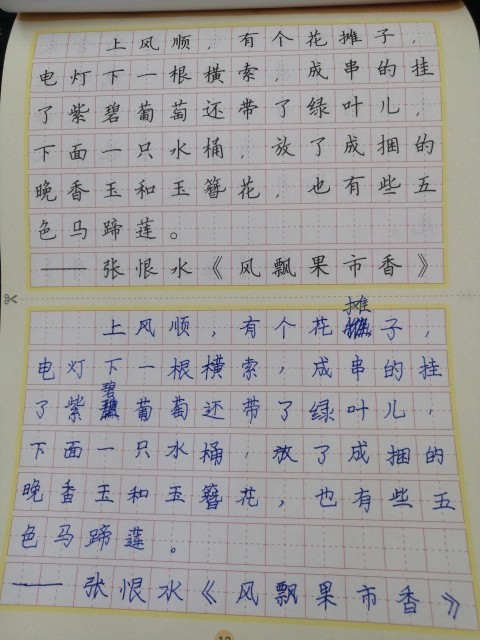 上风顺，有个花摊子，
电灯下一根横索，成串的挂
了紫碧葡萄还带了绿叶儿，
下面一只水桶，放了成捆的
晚香玉和玉簪花，也有些五
色马蹄莲。
——张恨水《风飘果市香》
摊
上风顺，有个花子，
电灯下一根横索，成串的挂
碧
了紫葡萄还带了绿叶儿，
下面一只水桶，放了成捆的
晚香玉和玉簪花，也有些五
色马蹄莲。
——张恨水《风飘果市香》